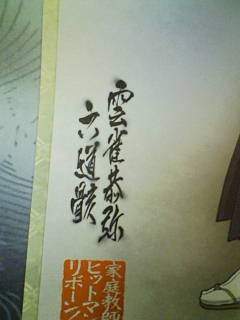 雲雀恭弥
六道骸
家庭教師
ヒットマン
リボーン